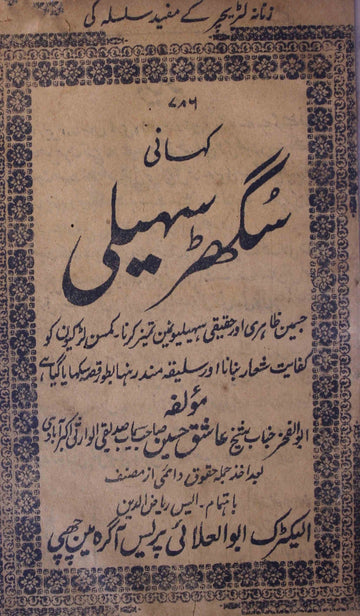 زنانہ لٹریچر کے مفید سلسلہ کی
۷۸۶
کہانی
سُگھڑ سہیلی
جسمیں ظاہری اور حقیقی سہیلیونمین تمیز کرنا۔ کمسن لڑکیون کو
کفایت شعار بنانا اور سلیقہ مند رہنا بطور قصہ سکھایا گیا ہے
مؤلفہ
ابوالفخر جناب شیخ عاشق حسین صاحب سیماب صدیقی الوارثی اکبرآبادی
بعد اخذ جملہ حقوق دائمی از مصنف
باہتمام۔ ایس ریاض الدین
الیکٹرک ابوالعلائی پریس آگرہ مین چھپی